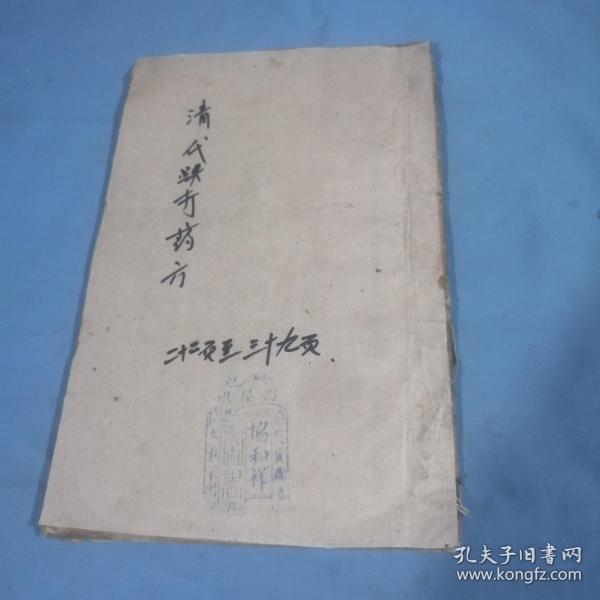 清代跌打药方
二十二页至三十九页.
協和祥
孔夫子旧書网
www.kongfz.com